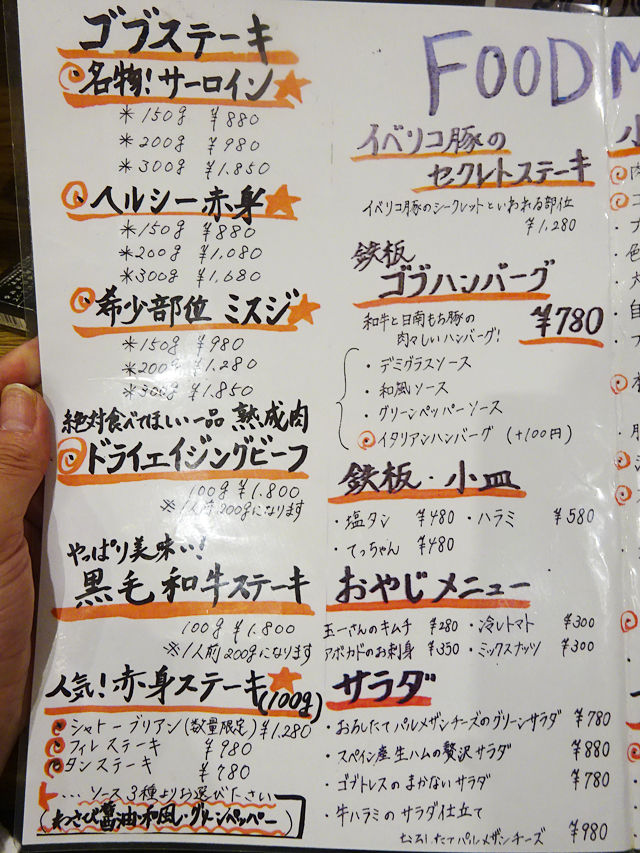 ゴブステーキ
名物!サーロイン
*150g ¥880
*200g ¥980
*300g ¥1.850
ヘルシー赤身
*150g ¥880
*200g ¥1,080
*300g ¥1,680
希少部位 ミスジ
*150g ¥980
*200g ¥1,280
*300g ¥1.850
絶対食べてほしい一品 熟成肉
ドライエイジングビーフ
100g ¥1.800
※1人前200gになります
やっぱり美味い!
黒毛和牛ステーキ
100g ¥1.800
※1人前200gになります
人気!赤身ステーキ(100g)
シャトーブリアン(数量限定)¥1.280
フィレステーキ ¥980
タンステーキ ¥780
...ソース3種よりお選びください
(わさび醤油・和風・グリーンペッパー)
FOOD M
イベリコ豚の
セクレトステーキ
イベリコ豚のシークレットといわれる部位
¥1,280
鉄板
ゴブハンバーグ
和牛と日南もち豚の
肉々しいハンバーグ!
¥780
・デミグラスソース
・和風ソース
・グリーンペッパーソース
イタリアンハンバーグ (+100円)
鉄板・小皿
・塩タン ¥480 ・ハラミ ¥580
・てっちゃん ¥480
おやじメニュー
玉一さんのキムチ ¥280 ・冷しトマト ¥300
アボカドのお刺身 ¥350 ・ミックスナッツ ¥300
サラダ
・おろしたてパルメザンチーズのグリーンサラダ ¥780
・スペイン産生ハムの贅沢サラダ ¥880
・ゴブトレスのまかないサラダ ¥780
・牛ハラミのサラダ仕立て
おろしたてパルメザンチーズ ¥980